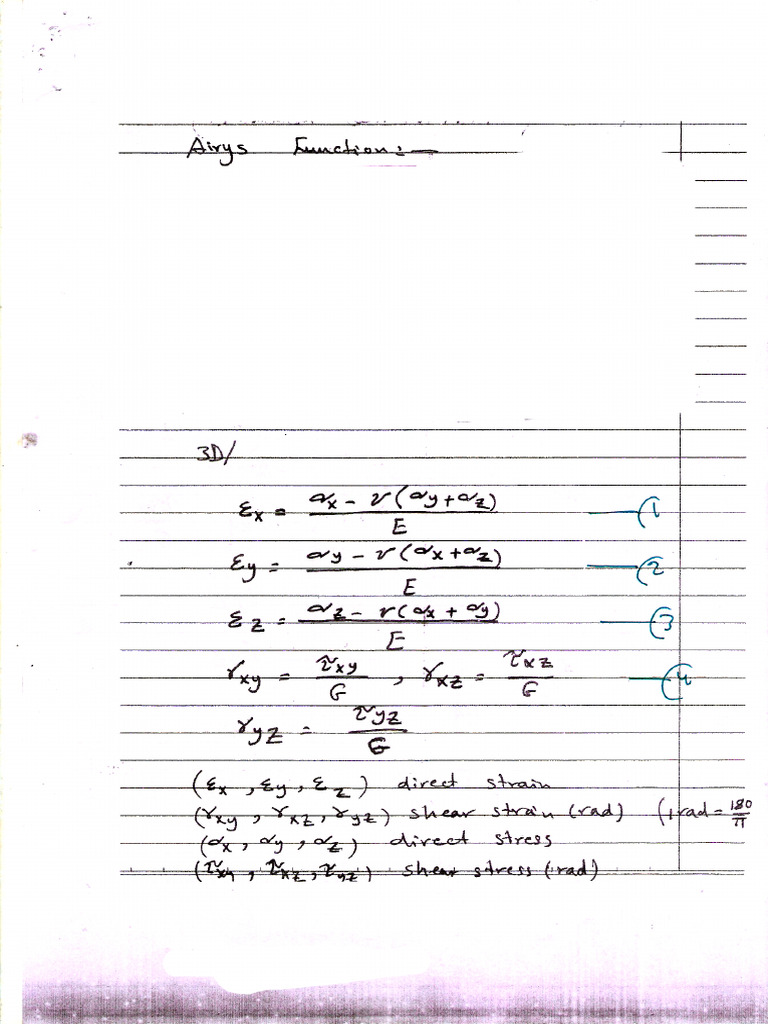 Airys Function:—
3D/
εx = σx - ν(σy+σz) / E —(1
εy = σy - ν(σx+σz) / E —(2
εz = σz - ν(σx + σy) / E —(3
γxy = τxy / G , γxz = τxz / G —(4
γyz = τyz / G
(εx , εy , εz) direct strain
(γxy , γxz , γyz) shear strain (rad) (1rad = 180/π
(σx , σy , σz) direct stress
(τxy , τxz , τyz) shear stress (rad)